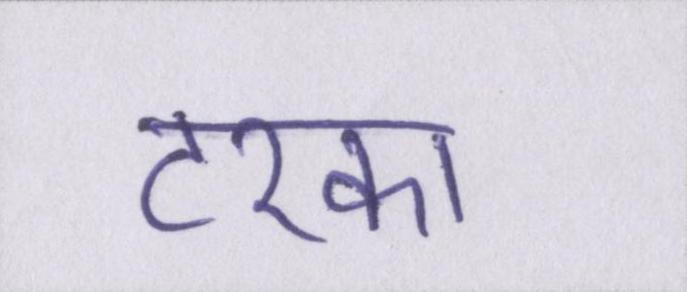 टरका